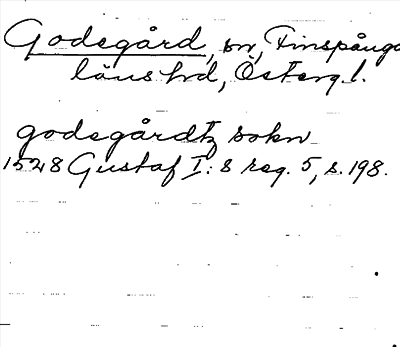 Godegård, sn, Finspånga
läns hd, Östergl.
godegårdtz sokn
1528 Gustaf I:s reg. 5, s. 198.